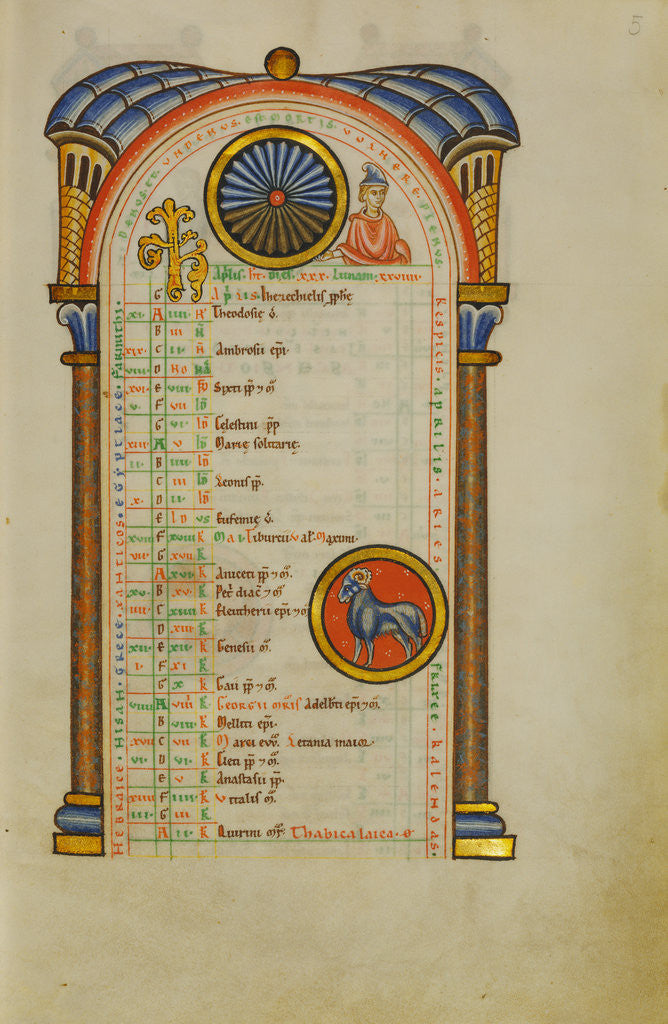 5
DENUS. ET. UNDENUS. est MORTIS. VULNERE. PLENUS.
KL Aprilis. ht. dies. xxx. Lunam. xxviiii.
G Aprilis. Iherechielis pphe
xi. A iiii. N Theodosie v.
B iii N
xix. C ii. N Ambrosii epi.
viii. D No NA
xvi. E viii ID Sixti pp 7 m
v. F vii ID
G vi ID Celestini pp
xiii A v ID Marie solitarie.
ii. B iiii ID
C iii ID Leonis pp.
x. D ii. ID
E ID us Eufemie v.
xviii F xviii K Mai. Tiburcii. Val. Maximi.
vii. G xvii K
A xvi. K Aniceti pp 7 m.
xv. B xv. K Petri diac 7 m
iiii. C xiiii K Eleutherii epi 7 m
D xiii K
xii. E xii. K Genesii m.
i. F xi K
G x K Gaii pp 7 m.
viiii A viiii K Georgii mris Adelbti epi 7 m.
B viii. K Melliti epi.
xvii C vii K Marci evv. Letania maior.
vi. D vi. K Cleti pp 7 m.
E v K Anastasii pp.
xiiii F iiii. K Vitalis m.
iii. G iii K
A ii. K Quirini mr.
Hebraice. Hisan. Grece. xanticos. egyptiace. Farmuthi.
Respicis. aprilis. aries. frixee. kalendas.